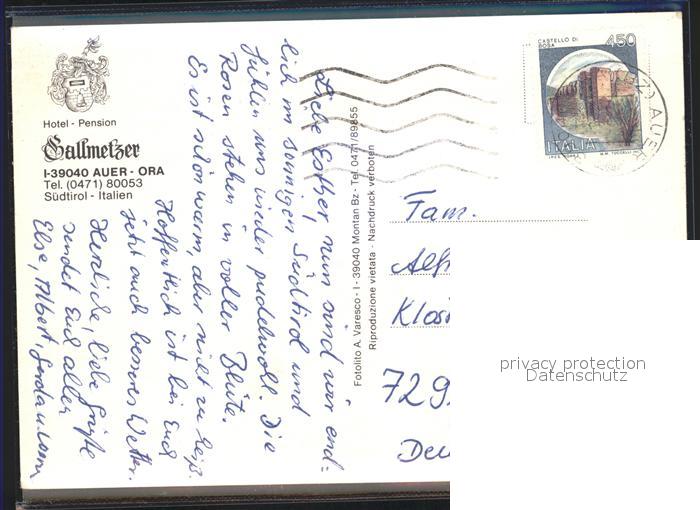 Hotel - Pension
Gallmetzer
I-39040 AUER - ORA
Tel. (0471) 80053
Südtirol - Italien
Liebe Esther, nun sind wir end=
lich im sonnigen Südtirol und
fühlen uns wieder pudelwohl. Die
Rosen stehen in voller Blüte.
Es ist schön warm, aber nicht zu heiß.
Hoffentlich ist bei Euch
jetzt auch besseres Wetter.
Herzliche, liebe Grüße
sendet Euch allen
Else, Albert,
Fotolito A. Varesco - I - 39040 Montan Bz - Tel. 0471/89855
Riproduzione vietata - Nachdruck verboten
CASTELLO DI
BOSA
450
ITALIA
AUER
Fam.
Alf
Klosi
729
Deu
privacy protection
Datenschutz